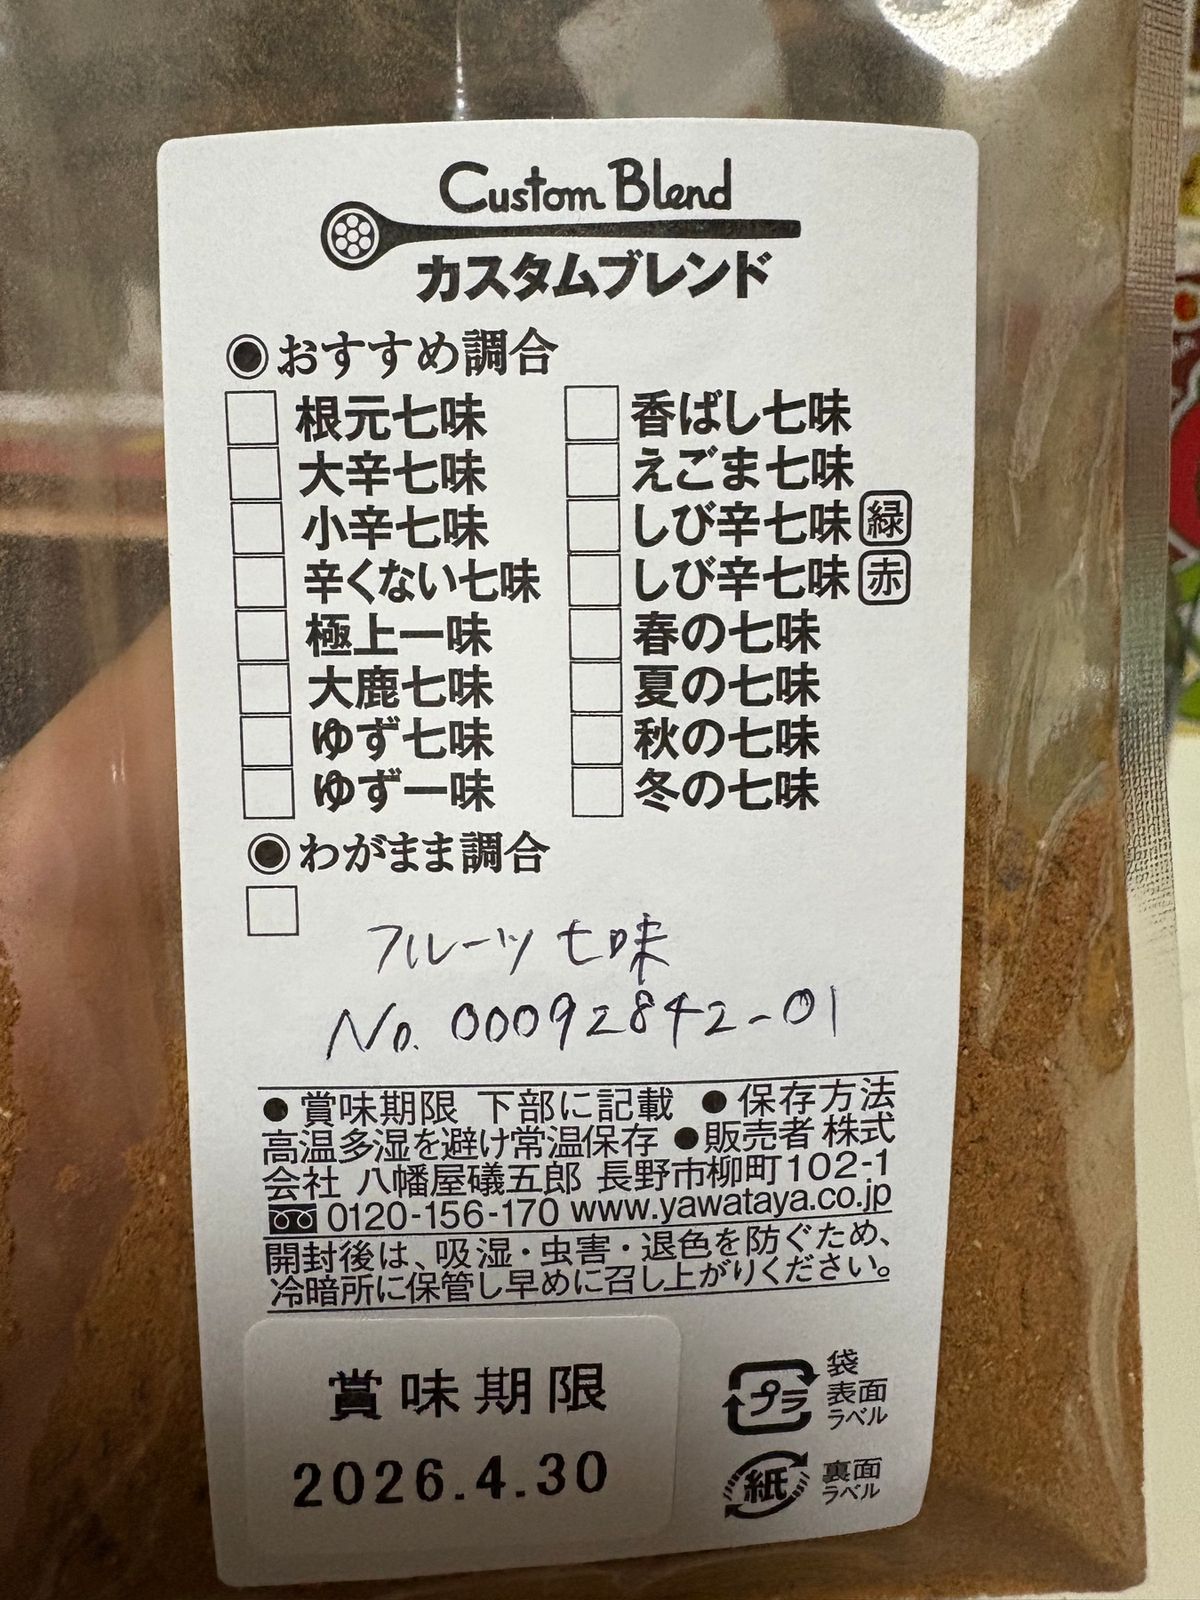 Custom Blend
カスタムブレンド
◉おすすめ調合
□根元七味 □香ばし七味
□大辛七味 □えごま七味
□小辛七味 □しび辛七味 緑
□辛くない七味 □しび辛七味 赤
□極上一味 □春の七味
□大鹿七味 □夏の七味
□ゆず七味 □秋の七味
□ゆず一味 □冬の七味
◉わがまま調合
□
フルーツ七味
No. 00092842-01
●賞味期限 下部に記載 ●保存方法
高温多湿を避け常温保存 ●販売者 株式
会社 八幡屋礒五郎 長野市柳町102-1
0120-156-170 www.yawataya.co.jp
開封後は、吸湿・虫害・退色を防ぐため、
冷暗所に保管し早めに召し上がりください。
賞味期限
2026.4.30
プラ 袋
表面
ラベル
紙 裏面
ラベル